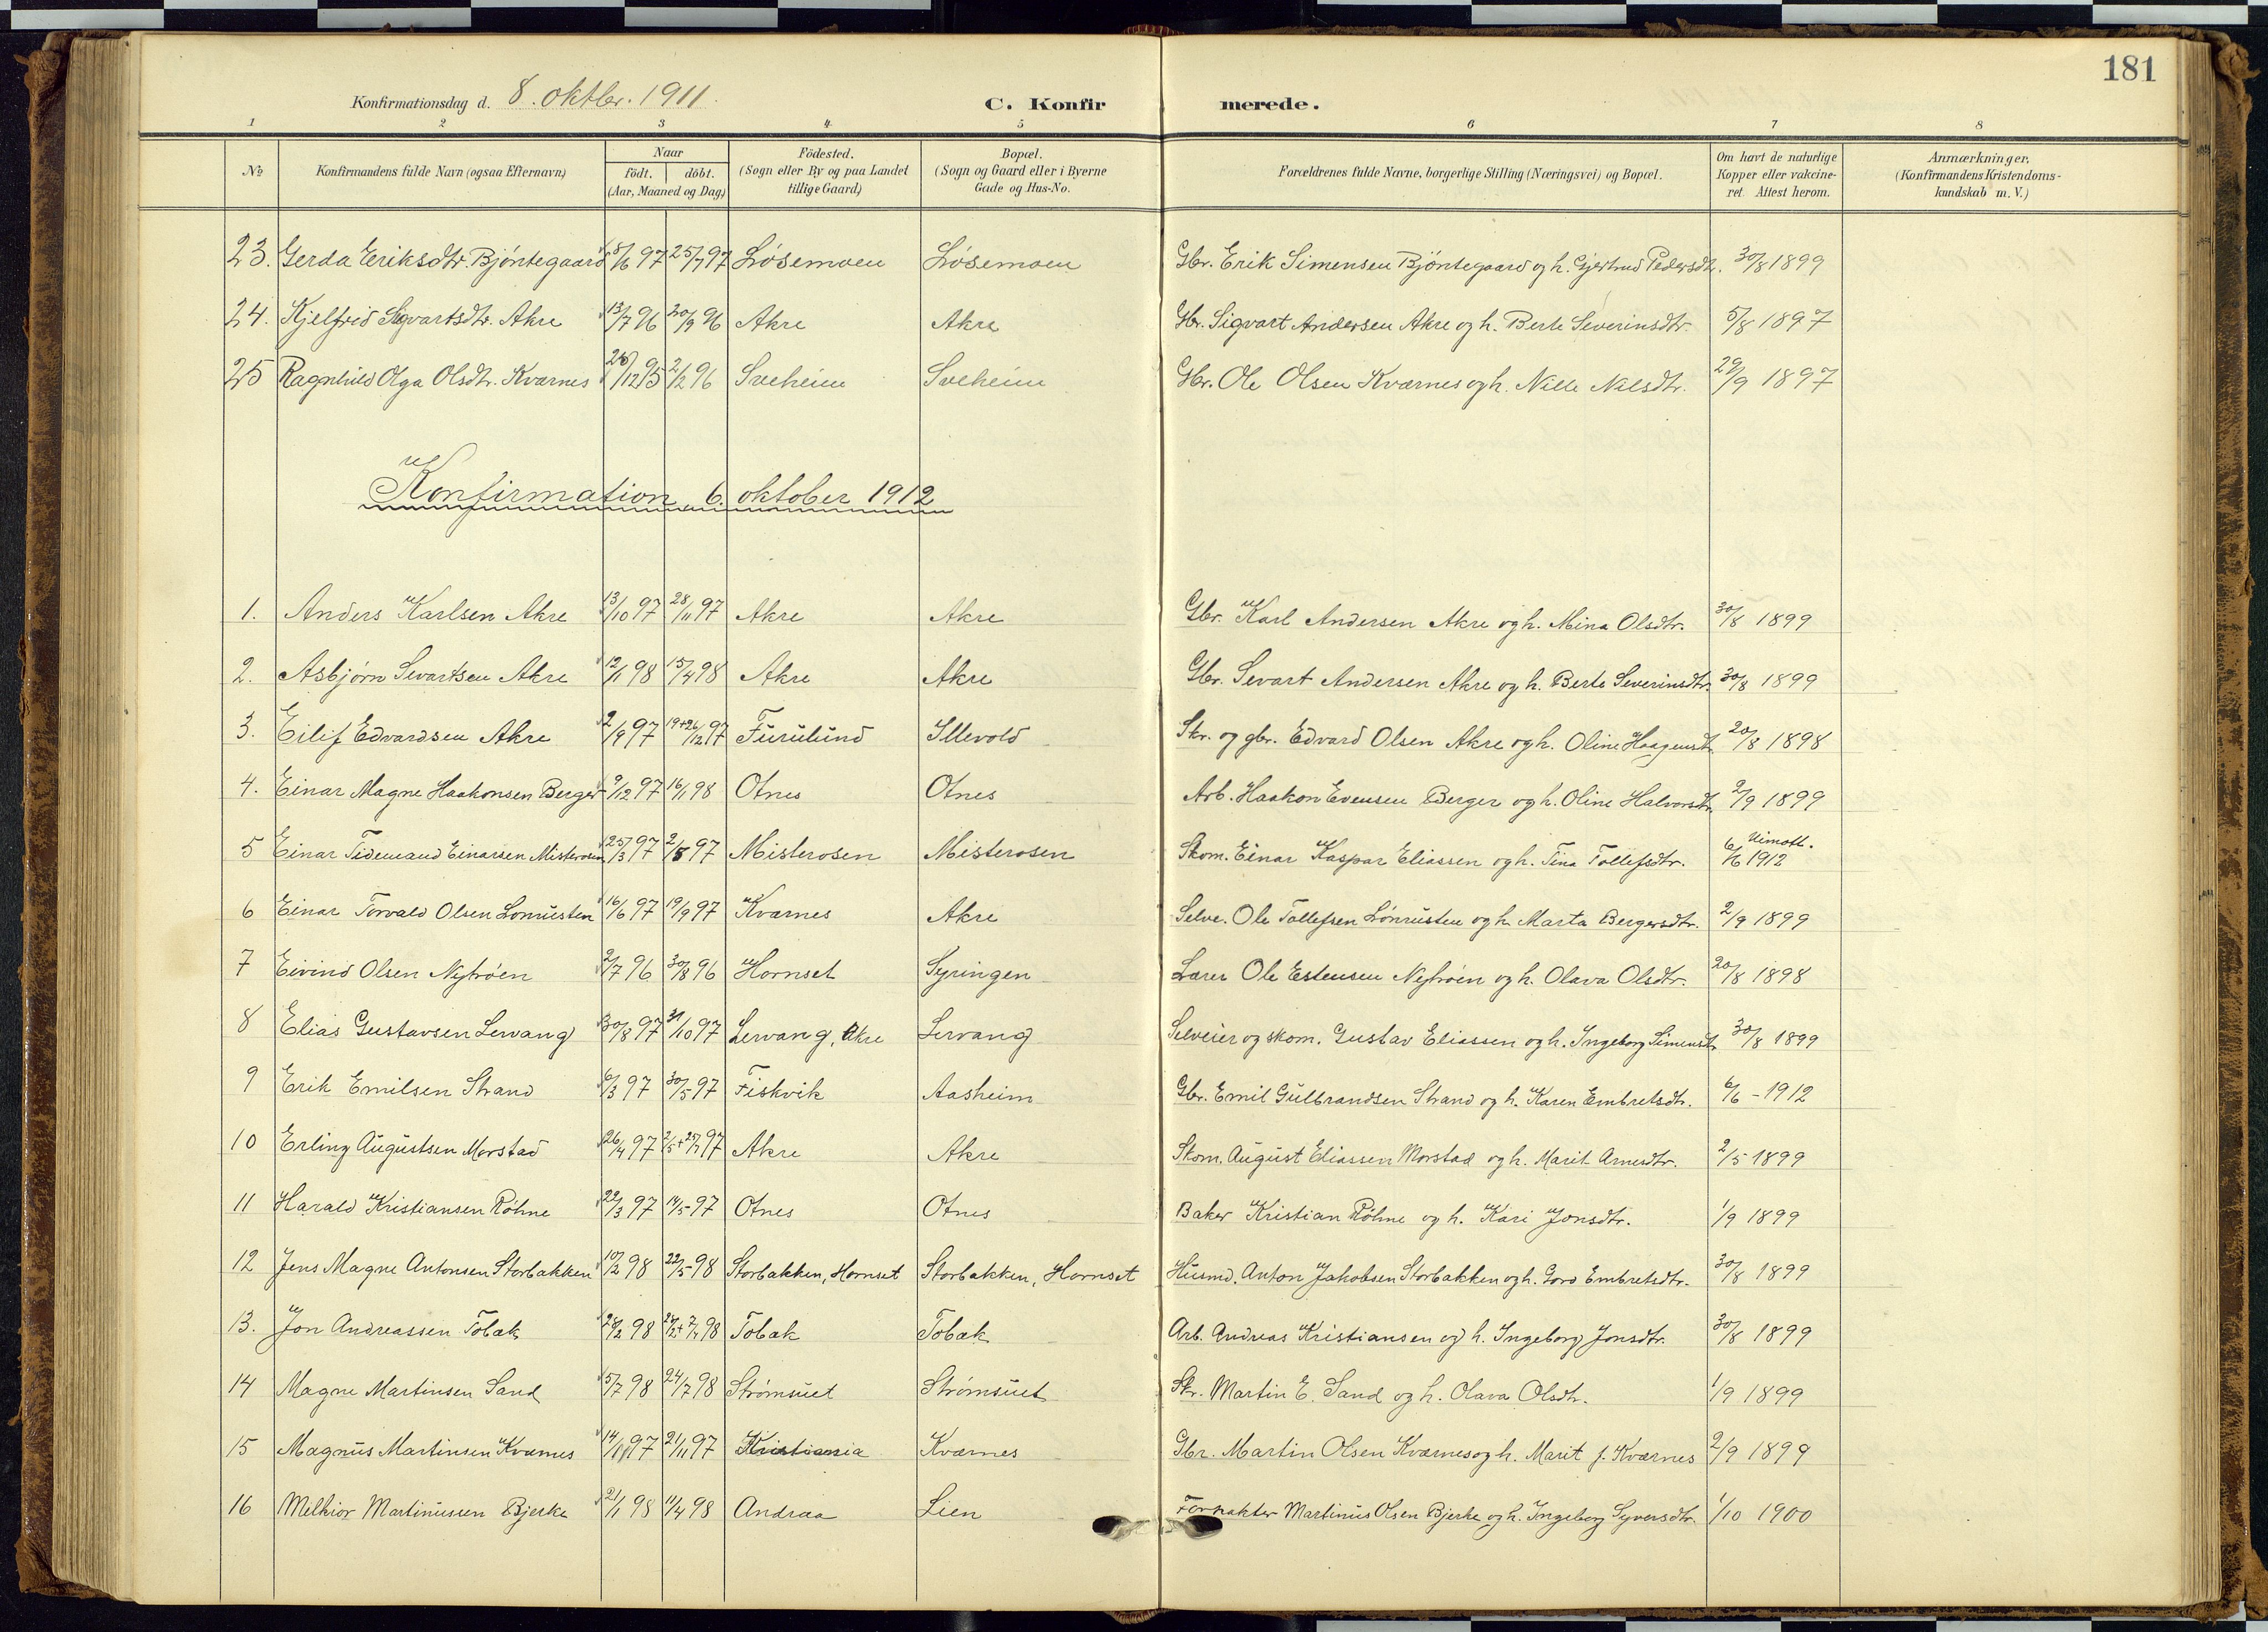 181
Konfirmationsdag d. 8. oktbr. 1911. C. Konfir merede.
1 2 3 4 5 6 7 8
No Konfirmandens fulde Navn (ogsaa Efternavn) Naar födt. döbt. (Aar, Maaned og Dag) Födested. (Sogn eller By og paa Landet tillige Gaard) Bopæl. (Sogn og Gaard eller i Byerne Gade og Hus-No. Forældrenes fulde Navne, borgerlige Stilling (Næringsvei) og Bopæl. Om havt de naturlige Kopper eller vakcineret. Attest herom. Anmærkninger. (Konfirmandens Kristendomskundskab m. V.)
23. Gerda Eriksdtr. Bjöntegaard 8/6 97 25/7 97 Lösemoen Lösemoen Gbr. Erik Simensen Bjöntegaard og h. Gjertrud Pedersdtr. 30/8 1899
24. Kjelfrid Sigvartsdtr. Akre 13/7 96 20/9 96 Akre Akre Gbr. Sigvart Andersen Akre og h. Berte Severinsdtr. 5/8 1897
25 Ragnhild Olga Olsdtr. Kværnes 26/12 95 2/2 96 Sveheim Sveheim Gbr. Ole Olsen Kværnes og h. Nille Nilsdtr. 29/9 1897
Konfirmation 6. oktober 1912
1. Anders Karlsen Akre 13/10 97 28/11 97 Akre Akre Gbr. Karl Andersen Akre og h. Mina Olsdtr. 30/8 1899
2. Asbjørn Sevartsen Akre 12/1 98 15/4 98 Akre Akre Gbr. Sevart Andersen Akre og h. Berte Severinsdtr. 30/8 1899
3. Eilif Edvardsen Akre 2/9 97 19+26/12 97 Furulund Illevold Skr. og gbr. Edvard Olsen Akre og h. Oline Haagensdt. 20/8 1898
4. Einar Magne Haakonsen Berger 9/12 97 16/1 98 Otnes Otnes Arb. Haakon Evensen Berger og h. Oline Halvorsdtr. 2/9 1899
5 Einar Tidemand Einarsen Misterosen 25/3 97 2/8 97 Misterosen Misterosen Skom. Einar Kaspar Eliassen og h. Tina Tollefsdtr. 6/6 1912
6 Einar Torvald Olsen Lonrusten 16/6 97 19/9 97 Kværnes Akre Selve. Ole Tollefsen Lönrusten og h. Marta Bergersdtr. 2/9 1899
7 Eivind Olsen Nytröen 2/7 96 30/8 96 Hornset Syringen Lærer Ole Estensen Nytröen og h. Olava Olsdtr. 20/8 1898
8 Elias Gustavsen Lervang 30/8 97 31/10 97 Lervang, Akre Lervang Selveier og skom. Gustav Eliassen og h. Ingeborg Simensdt. 30/8 1899
9 Erik Emilsen Strand 6/3 97 30/5 97 Fiskvik Aasheim Gbr. Emil Gulbrandsen Strand og h. Karen Embretsdtr. 6/6 - 1912
10 Erling Augustsen Morstad 26/4 97 2/5+25/7 97 Akre Akre Skom. August Eliassen Morstad og h. Marit Arnesdtr. 2/5 1899
11 Harald Kristiansen Röhne 22/3 97 14/5 97 Otnes Otnes Baker Kristian Röhne og h. Kari Jonsdtr. 1/9 1899
12 Jens Magne Antonsen Storbakken 10/2 98 22/5 98 Storbakken, Hornset Storbakken, Hornset Husmd. Anton Jakobsen Storbakken og h. Goro Embretsdtr. 30/8 1899
13. Jon Andreassen Tobak 98 98 Tobak Tobak Arb. Andreas Kristiansen og h. Ingeborg Jonsdtr. 30/8 1899
14 Magne Martinsen Sand 5/7 98 24/7 98 Strömsuet Strömsuet Skr. Martin E. Sand og h. Olava Olsdtr. 1/9 1899
15 Magnus Martinsen Kværnes 97 21/11 97 Kristiania Kværnes Gbr. Martin Olsen Kværnes og h. Marit f. Kværnes 2/9 1899
16 Melkior Martinussen Bjerke 21/1 98 11/4 98 Andraa Lien Forpakter Martinus Olsen Bjerke og h. Ingeborg Syversdtr. 1/10 1900